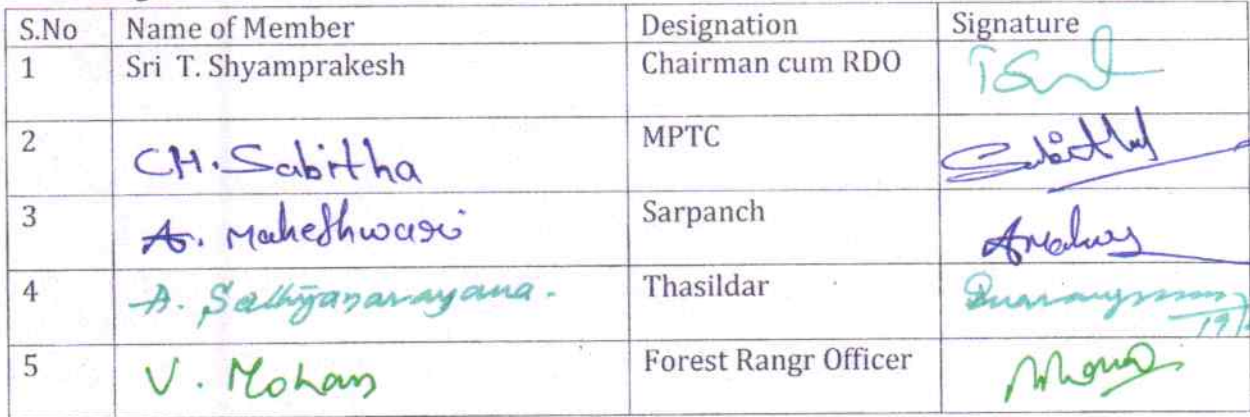 S.No Name of Member Designation Signature
1 Sri T. Shyamprakesh Chairman cum RDO
2 CH. Sabitha MPTC Sabitha
3 A. Maheshwari Sarpanch
4 A. Sathyanarayana. Thasildar 19/
5 V. Mohan Forest Rangr Officer